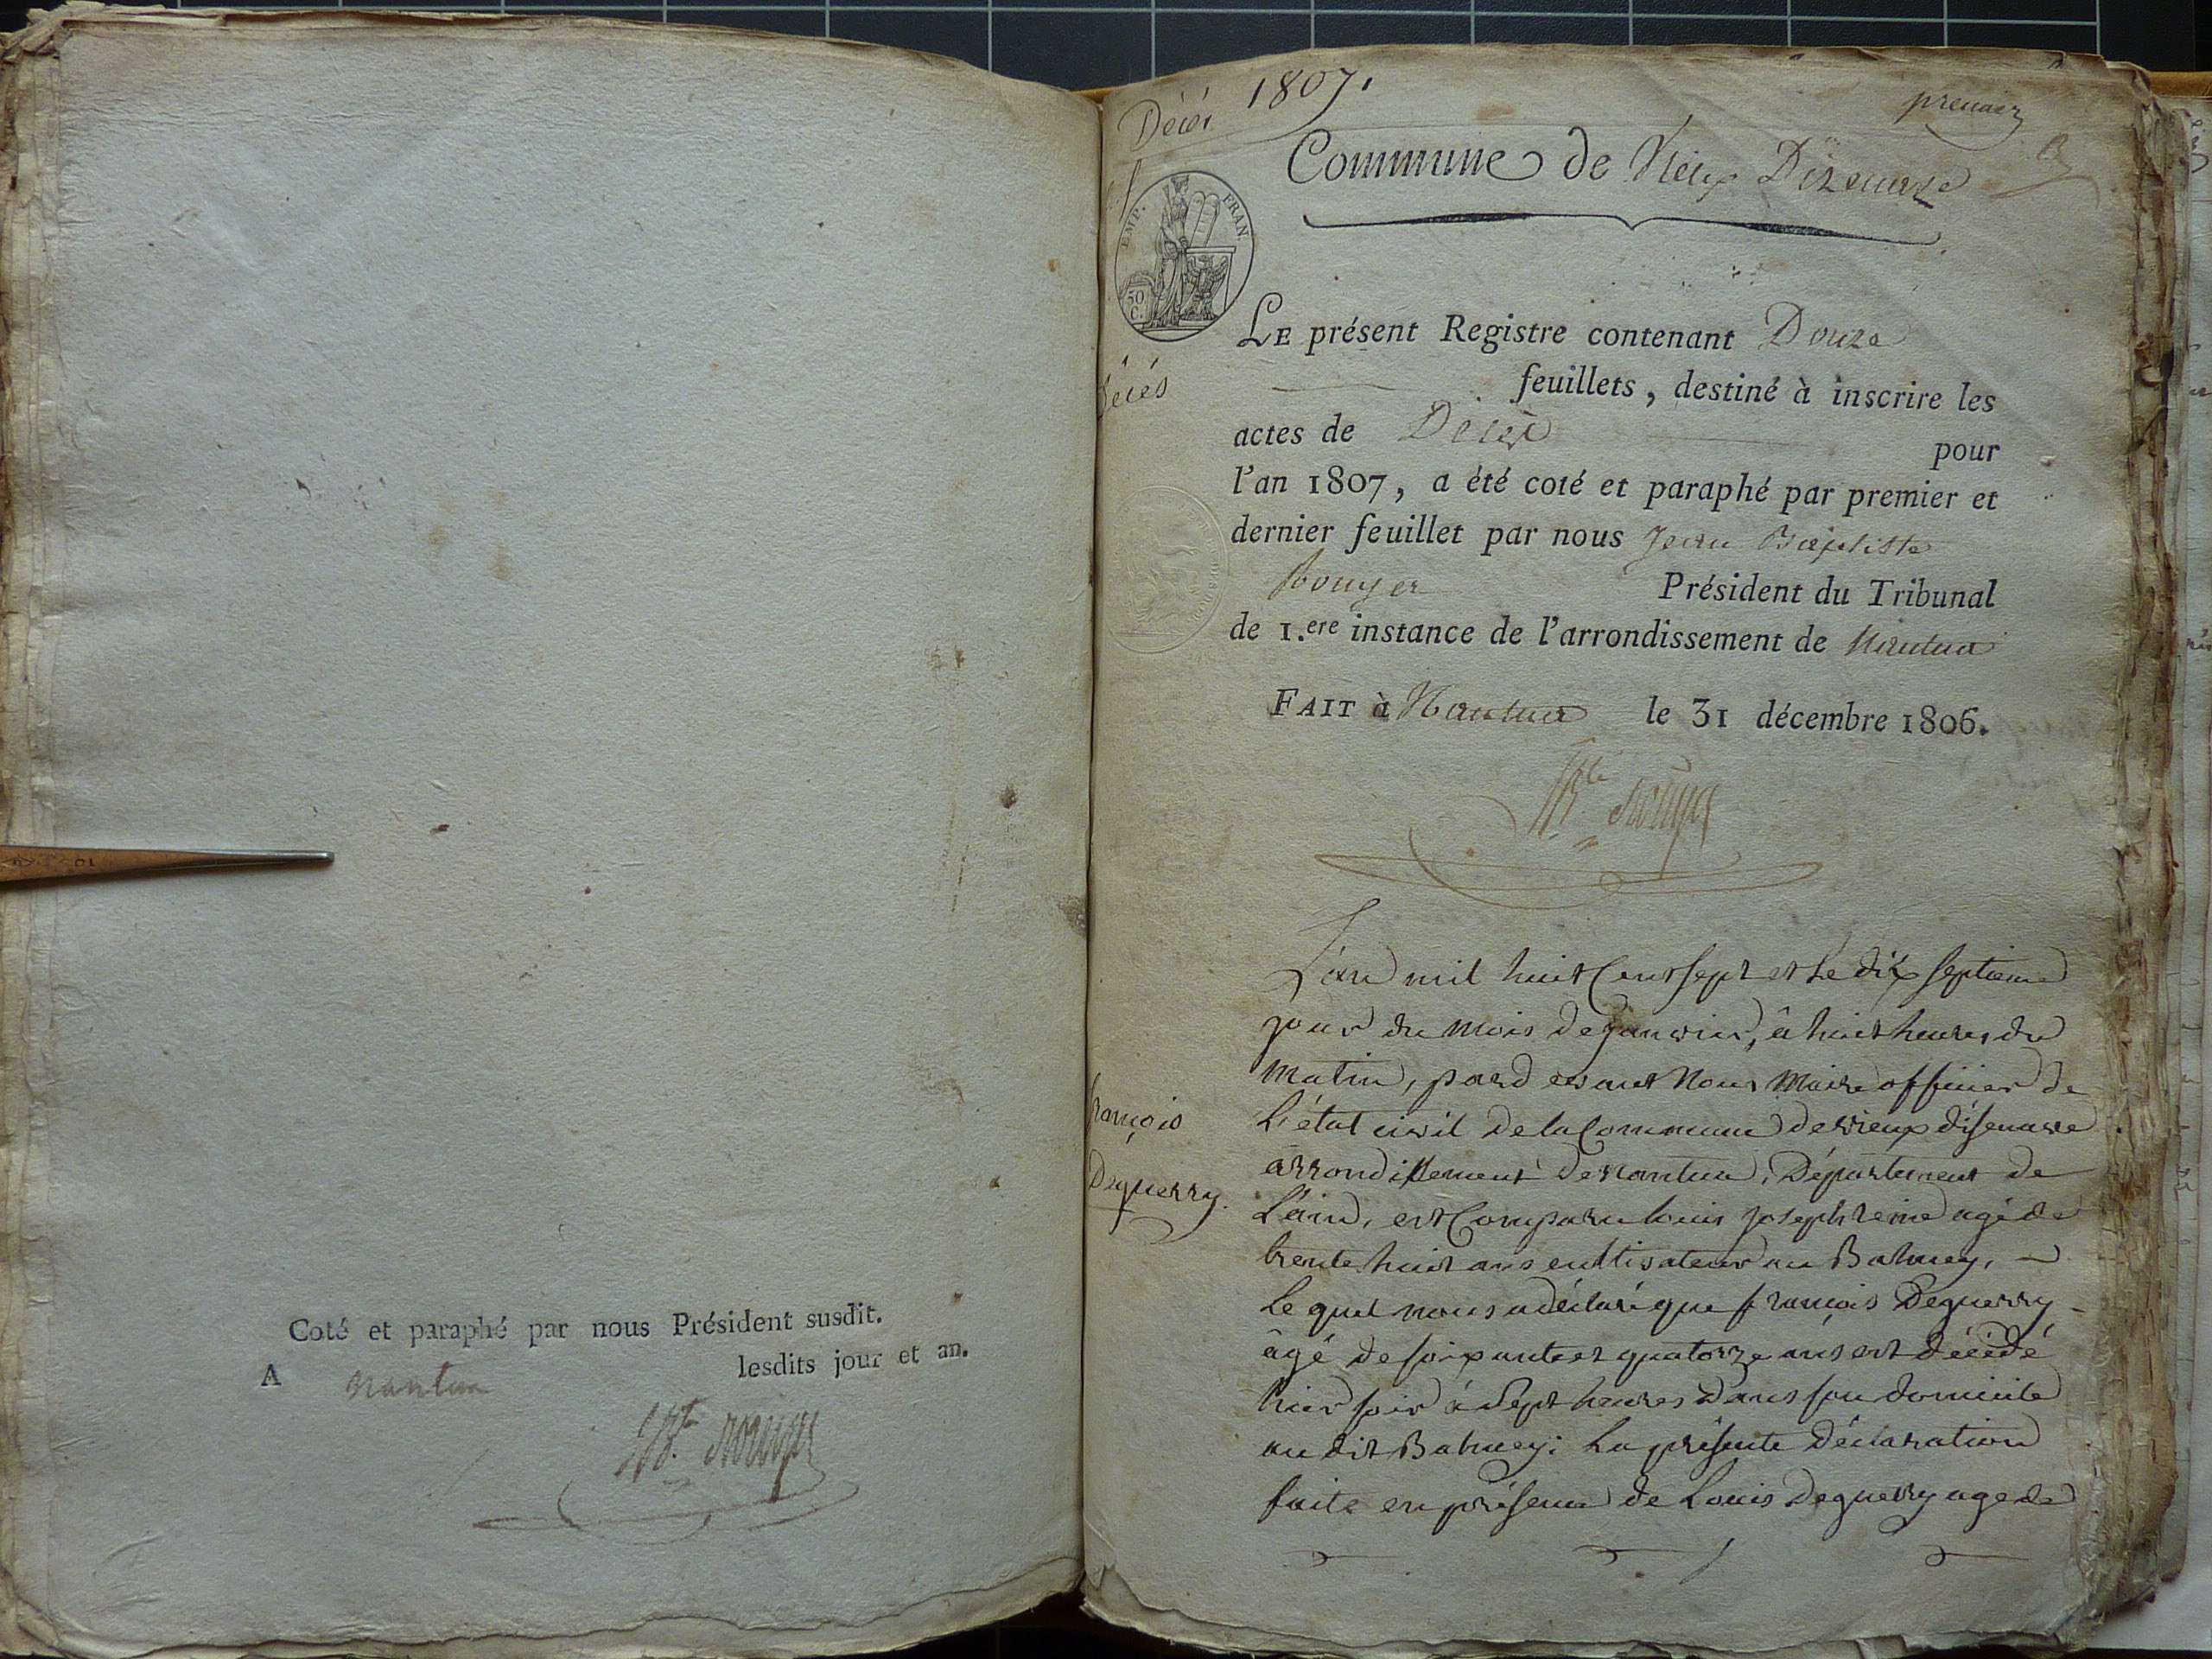 Coté et paraphé par nous Président susdit.
A nantua lesdits jour et an.
Décès 1807.
premier
Commune de Vieux Dizenave
EMP. FRAN.
50 C.
LE présent Registre contenant Douze
feuillets, destiné à inscrire les
Décès
actes de Décès pour
l'an 1807, a été coté et paraphé par premier et
dernier feuillet par nous Jean Baptiste
Rouyer Président du Tribunal
de 1.ere instance de l'arrondissement de Nantua
FAIT à Nantua le 31 décembre 1806.
L'an mil huit Cent sept et Le dix septieme
jour du mois de janvier, à huit heures du
matin, pardevant Nous Maire officier de
L'état civil de la Commune de vieux disenave
arrondissement de nantua, Département de
L'ain, est Comparu louis joseph reine agé de
trente huit ans cultivateur au Balmey,
Le quel nous a déclaré que françois Deguerry
âgé de soixante et quatorze ans est décédé
hier soir à Sept heures dans son domicile
au dit Balmey; La présente déclaration
faite en présence de Louis Deguerry age de
françois
Deguerry.